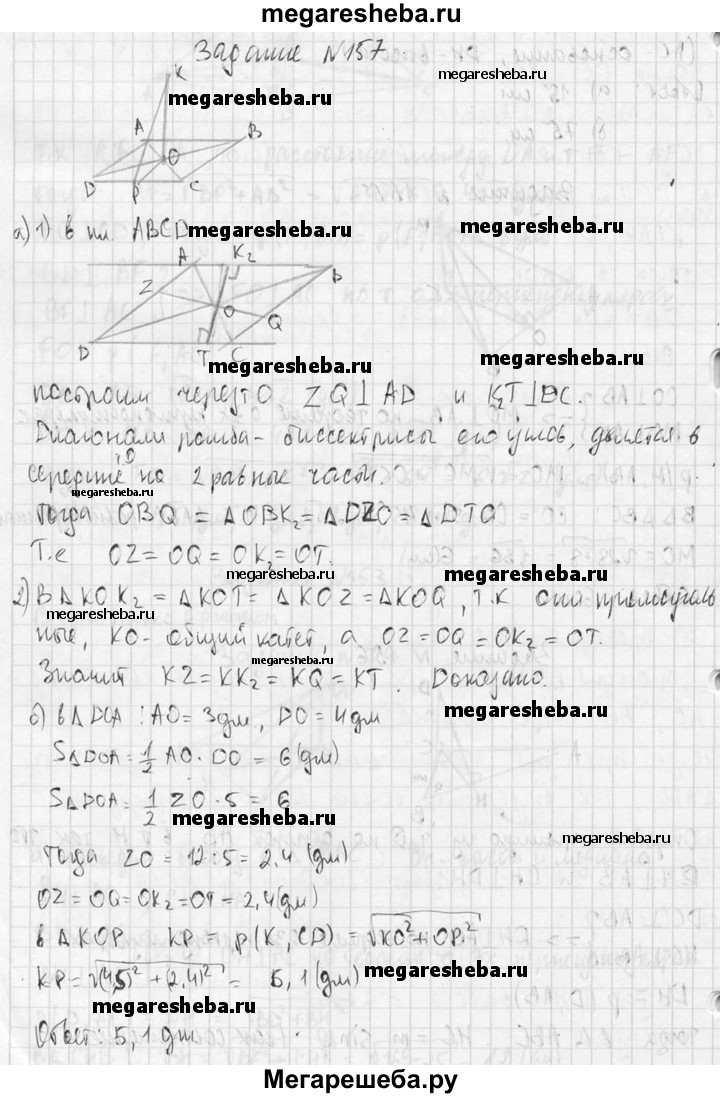 megaresheba.ru
Задание №157
megaresheba.ru
K
megaresheba.ru
A
B
O
D
P
C
а) 1) в пл. ABCD
megaresheba.ru
megaresheba.ru
A
K₂
B
Z
O
Q
D
T
C
megaresheba.ru
megaresheba.ru
построим через т O ZQ⊥AD и K₂T⊥DC.
Диагонали ромба - биссектрисы его углов, делятся в
т.O
середине на 2 равные части.
megaresheba.ru
megaresheba.ru
Тогда OBQ = ΔOBK₂ = ΔDZO = ΔDTO
Т.е OZ = OQ = OK₂ = OT.
megaresheba.ru
megaresheba.ru
2) В ΔKOK₂ = ΔKOT = ΔKOZ = ΔKOQ, т.к они прямоуголь
megaresheba.ru
ные, KO - общий катет, а OZ = OQ = OK₂ = OT.
megaresheba.ru
Значит KZ = KK₂ = KQ = KT. Доказано.
б) в ΔDCA : AO = 3дм, DO = 4дм
megaresheba.ru
SΔDOA = 1/2 AO · DO = 6 (дм)
SΔDCA = 1/2 ZO · 5 = 6
megaresheba.ru
megaresheba.ru
Тогда ZO = 12 : 5 = 2,4 (дм)
OZ = OQ = OK₂ = OT = 2,4 (дм)
в ΔKOP KP = p(K, CD) = √KO² + OP²
KP = √(4,5)² + (2,4)² = 5,1 (дм)
megaresheba.ru
megaresheba.ru
Ответ: 5,1 дм
Мегарешеба.ру